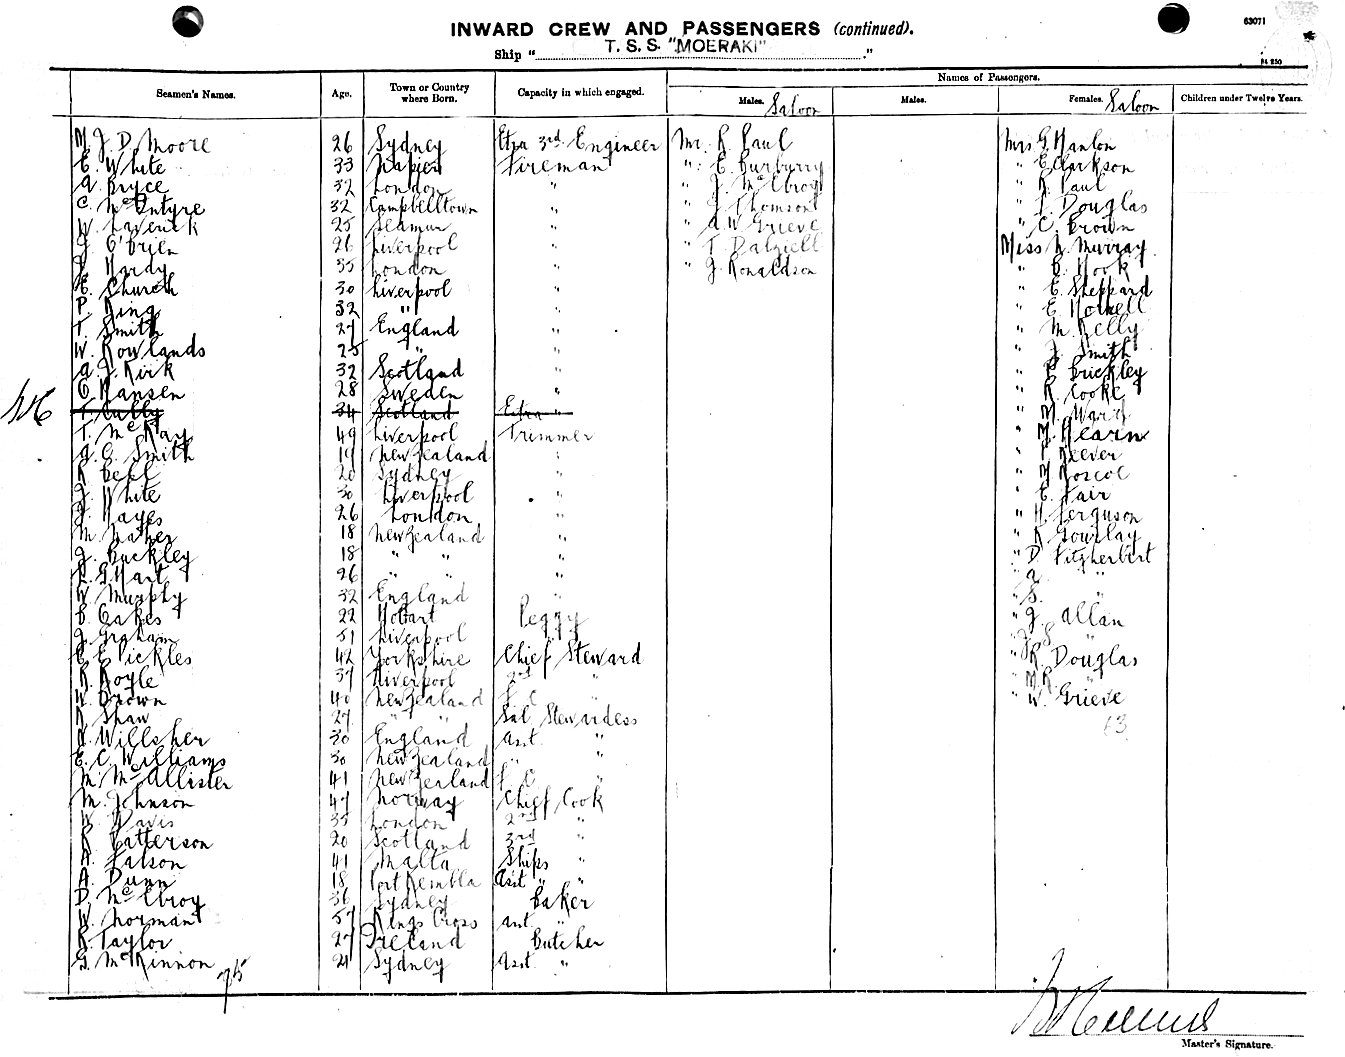 INWARD CREW AND PASSENGERS (continued).
63071
Ship "T. S. S. "MOERAKI""
Seamen's Names. Age. Town or Country where Born. Capacity in which engaged. Names of Passengers.
Males. Saloon Males. Females. Saloon Children under Twelve Years.
M. J. D. Moore 26 Sydney Etra 3rd Engineer Mr. R. Paul Mrs G. Hanlon
E. White 33 Napier Fireman " E. Burburry " E. Clarkson
A. Bryce 32 London " " J. McElroy " R. Paul
C. McIntyre 32 Campbelltown " " J. Thomson " Douglas
W. Laverick 25 Seamur " " A. W. Grieve " C. Brown
J. O'Brien 26 Liverpool " " T. Dalziell Miss N. Murray
J. Hardy 35 London " " J. Ronaldson " E. Hook
E. Church 30 Liverpool " " E. Sheppard
P. King 32 " " " E. Horkell
T. Smith 27 England " " M. Kelly
W. Rowlands 25 " " " J. Smith
A. J. Kirk 32 Scotland " " Brickley
O. Hansen 28 Sweden " " R. Cooke
T. Cully 34 Scotland Etra " " M. Ward
T. McKay 49 Liverpool Trimmer " M. Hearn
J. C. Smith 19 New Zealand " " Keever
R. Bell 20 Sydney " " M. Roscoe
J. White 30 Liverpool " " E. Fair
J. Hayes 26 London " " H. Ferguson
M. Maher 18 New Zealand " " R. Gourlay
J. Buckley 18 " " " " D. Fitzherbert
R. G. Hart 26 " " " " A. "
W. Murphy 32 England " " S. "
B. Oakes 22 Hobart Peggy " J. Allan
J. Graham 51 Liverpool " J. S. "
C. E. Pickles 42 Yorkshire Chief Steward " R. Douglas
R. Royle 37 Liverpool 2nd " " M. R. "
W. Brown 40 New Zealand f C " " W. Grieve
R. Shaw 27 " " Sal Stewardess 13
A. Willsher 30 England Asst. "
E. C. Williams 30 New Zealand " "
M. McAllister 41 New Zealand f C "
M. Johnson 47 Norway Chief Cook
W. Davis 35 London 2nd "
R. Patterson 20 Scotland 3rd "
A. Falson 41 Malta Ships "
A. Dunn 18 Port Kembla Asst " "
D. McElroy 36 Sydney Baker
W. Norman 57 Kings Cross Asst. "
R. Taylor 27 Ireland Butcher
G. McKinnon 21 Sydney Asst. "
75
Master's Signature.